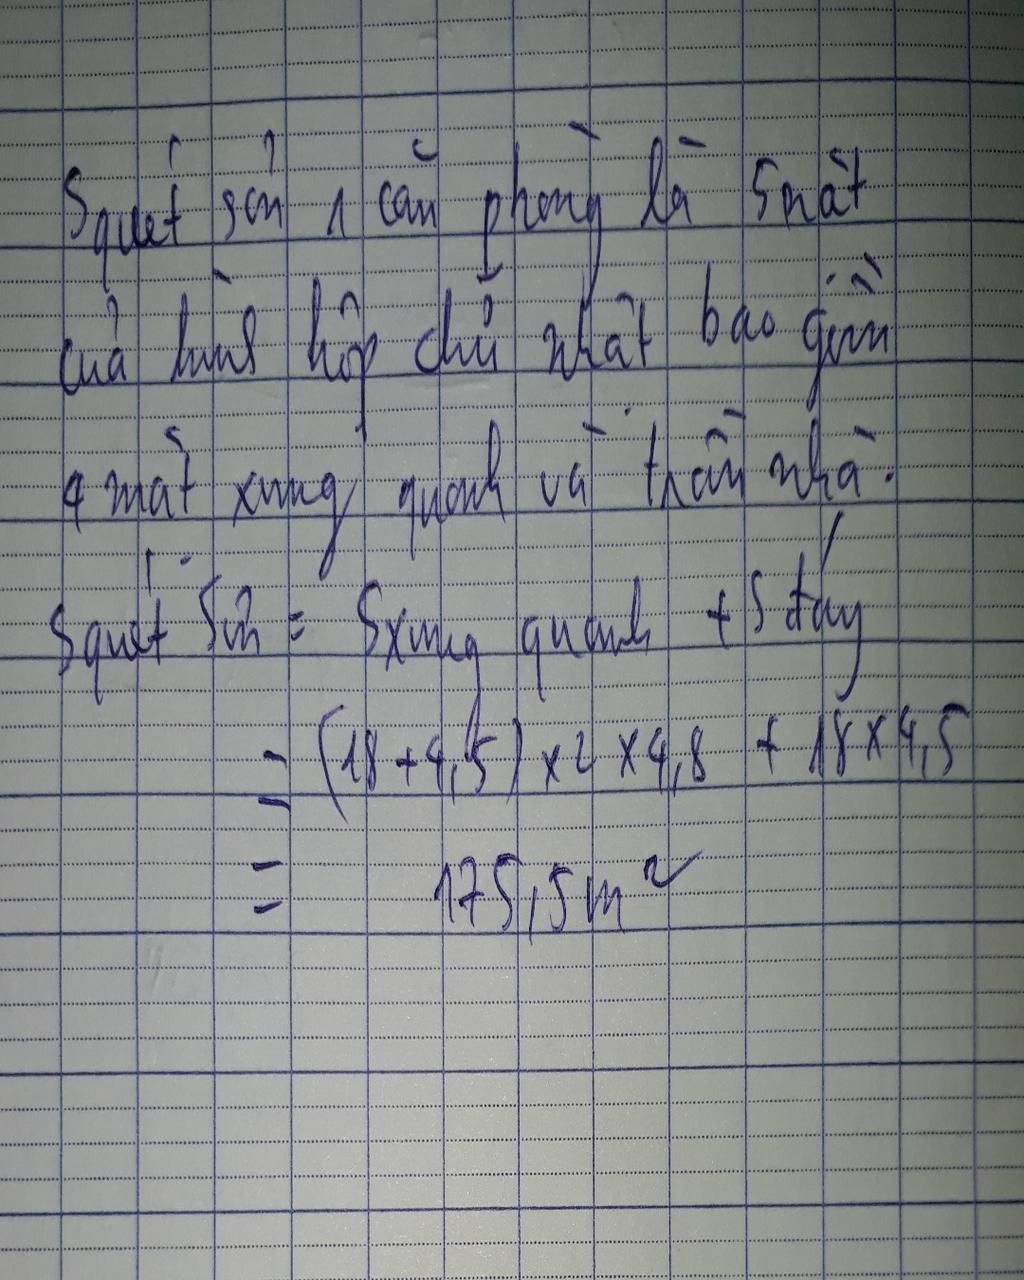 S quét sơn 1 căn phòng là 5 mặt
của hình hộp chữ nhật bao gồm
4 mặt xung quanh và trần nhà.
S quét sơn = S xung quanh + S đáy
= (18 + 4,5) x 2 x 4,8 + 18 x 4,5
= 175,5 m²